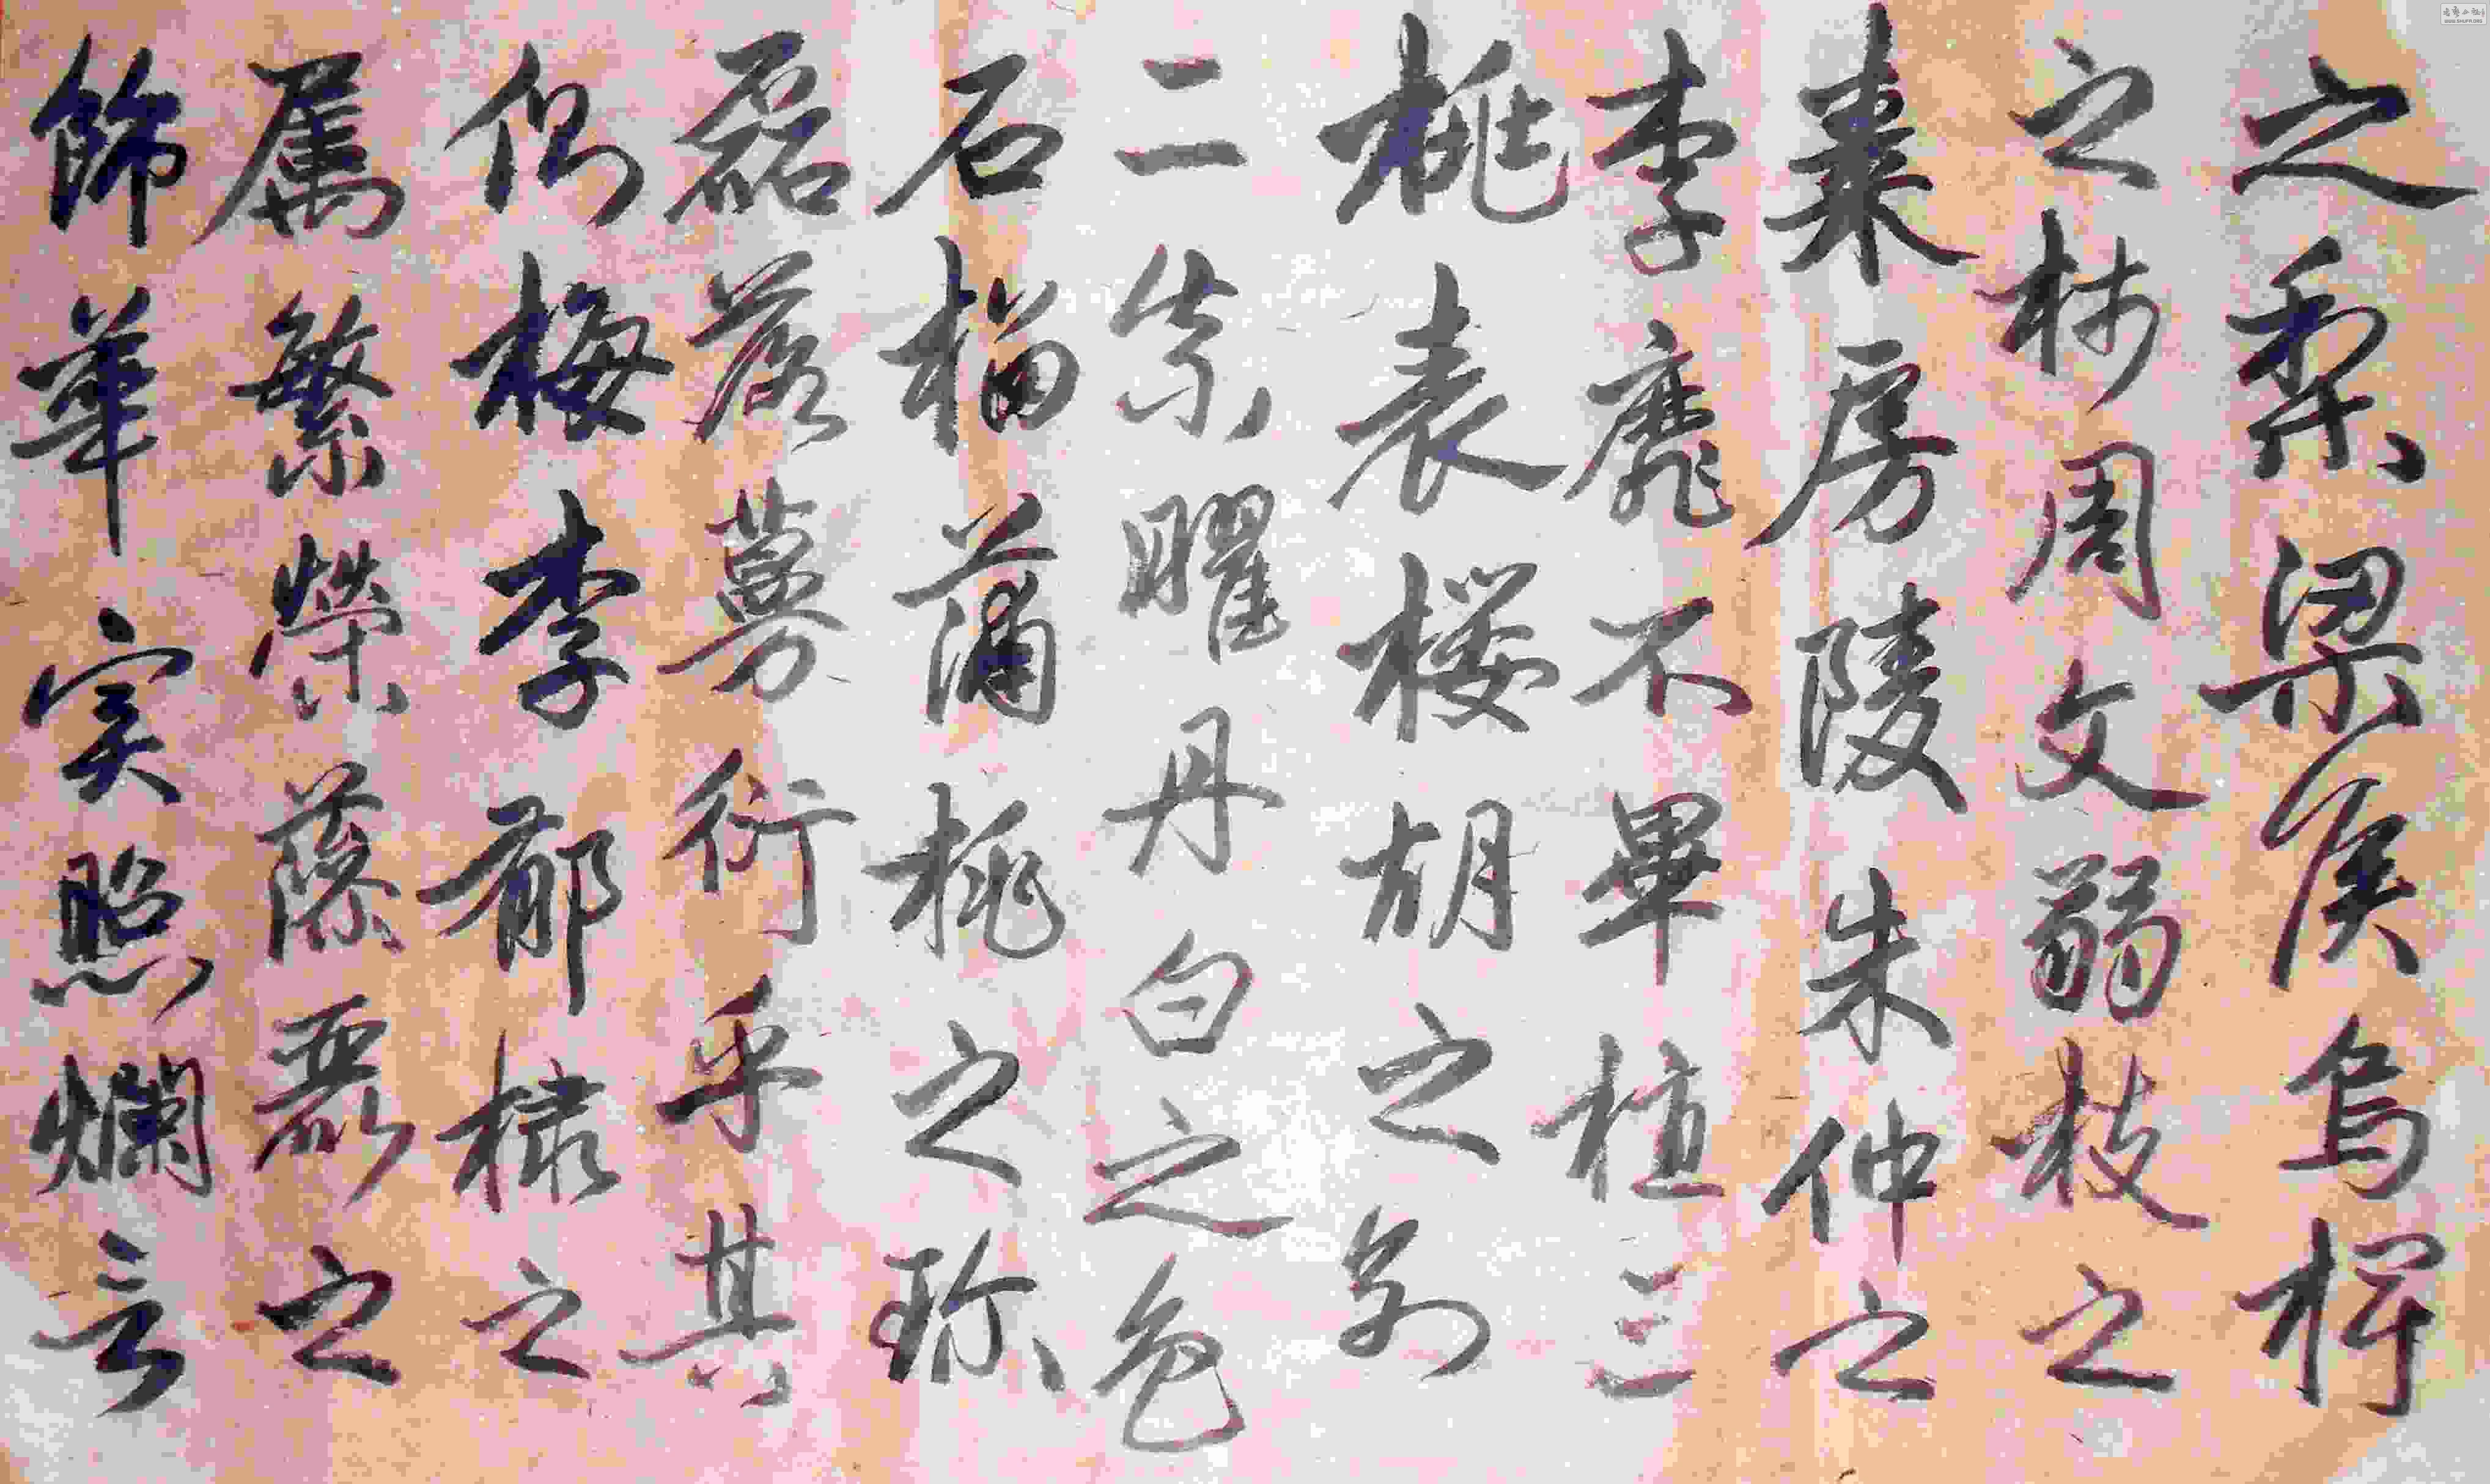 之梨梁侯烏椑
之柿周文弱枝之
棗房陵朱仲之
李靡不畢植三
桃表櫻胡之別
二柰曜丹白之色
石榴蒲桃之珎
磊落蔓衍乎其
側梅李郁棣之
属繁榮藻麗之
飾華実照爛言